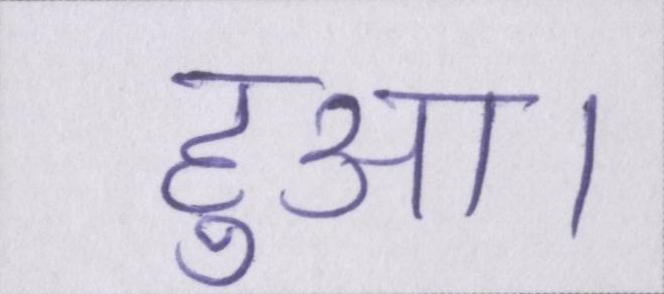 हुआ।